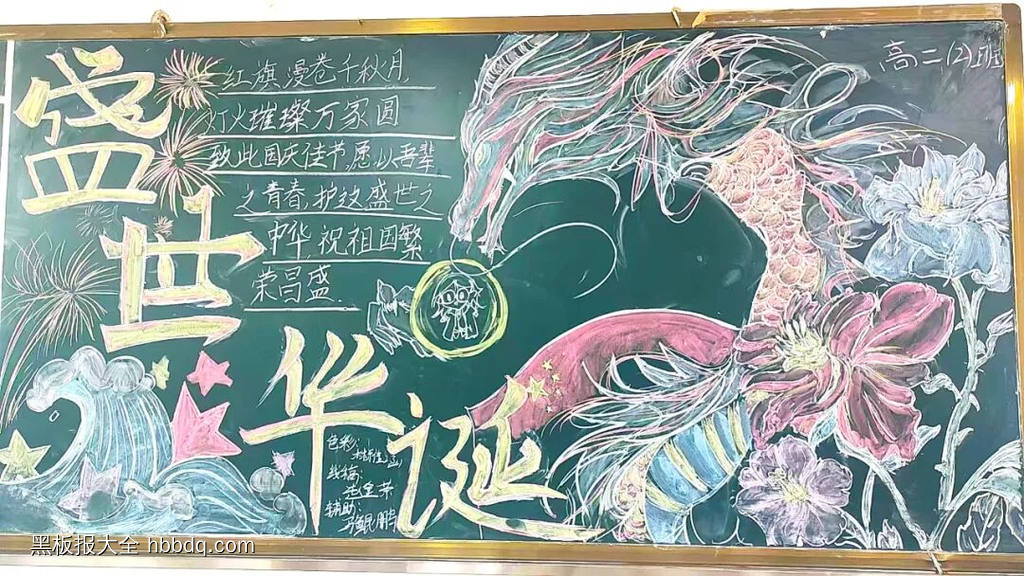 盛世华诞
高二(2)班
红旗漫卷千秋月
灯火璀璨万家圆
致此国庆佳节,愿以吾辈
之青春,护这盛世之
中华,祝祖国繁
荣昌盛
色彩:
线稿:
辅助:
黑板报大全 hbbdq.com